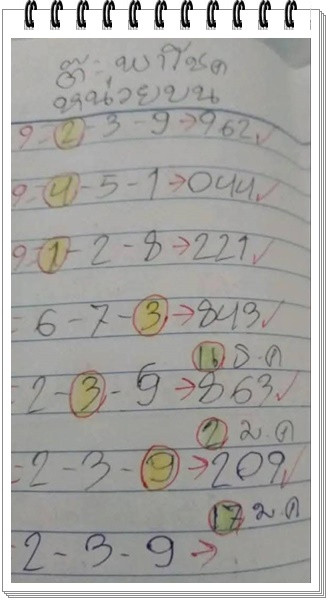 ตี๋: พาโชค
หน่วยบน
9-2-3-9→962✓
9-4-5-1→044✓
9-1-2-8→221✓
=6-7-3→843✓
16 ธ.ค
=2-3-9→863✓
2 ม.ค
=2-3-9→209✓
17 ม.ค
=2-3-9→